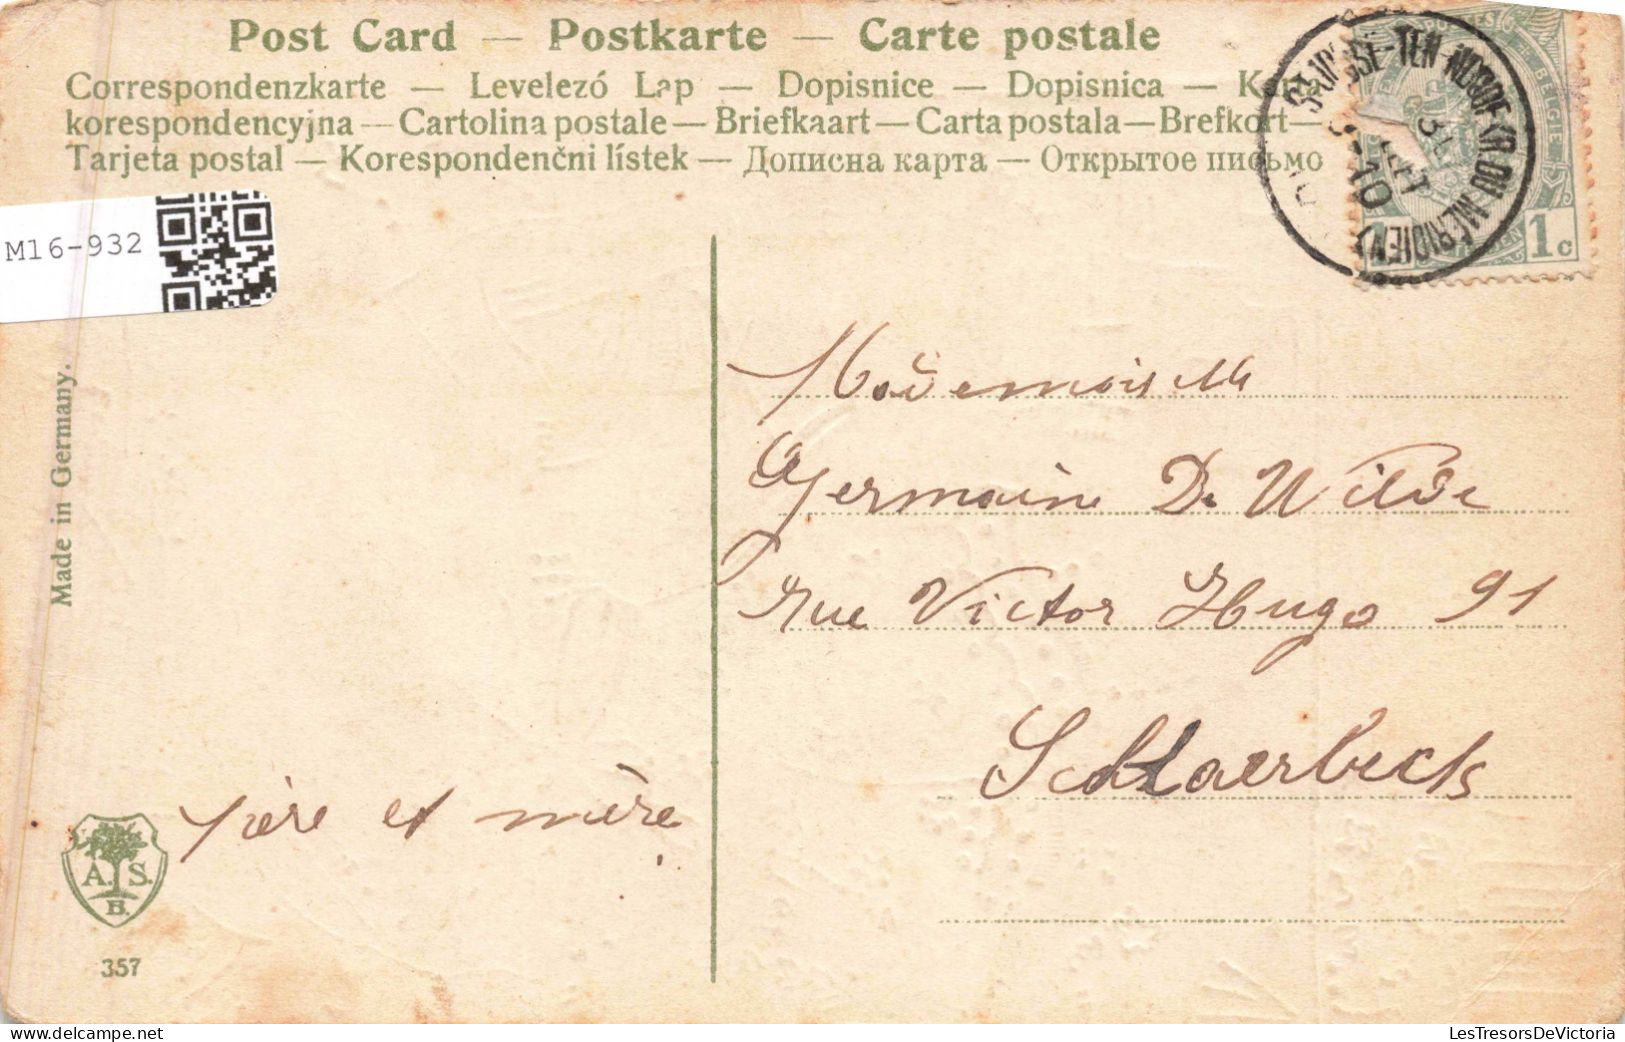 Post Card — Postkarte — Carte postale
Correspondenzkarte — Levelezó Lap — Dopisnice — Dopisnica — Karta
korespondencyjna — Cartolina postale — Briefkaart — Carta postala — Brefkort —
Tarjeta postal — Korespondenčni lístek — Дописна карта — Открытое письмо
ST-JOSSE-TEN-NOODE (R DU MÉRIDIEN)
BELGIE
1c
M16-932
Made in Germany.
Mademoiselle
Germaine De Wilde
Rue Victor Hugo 91
Schaerbeck
Père et mère
A. S.
B.
357
LesTresorsDeVictoria